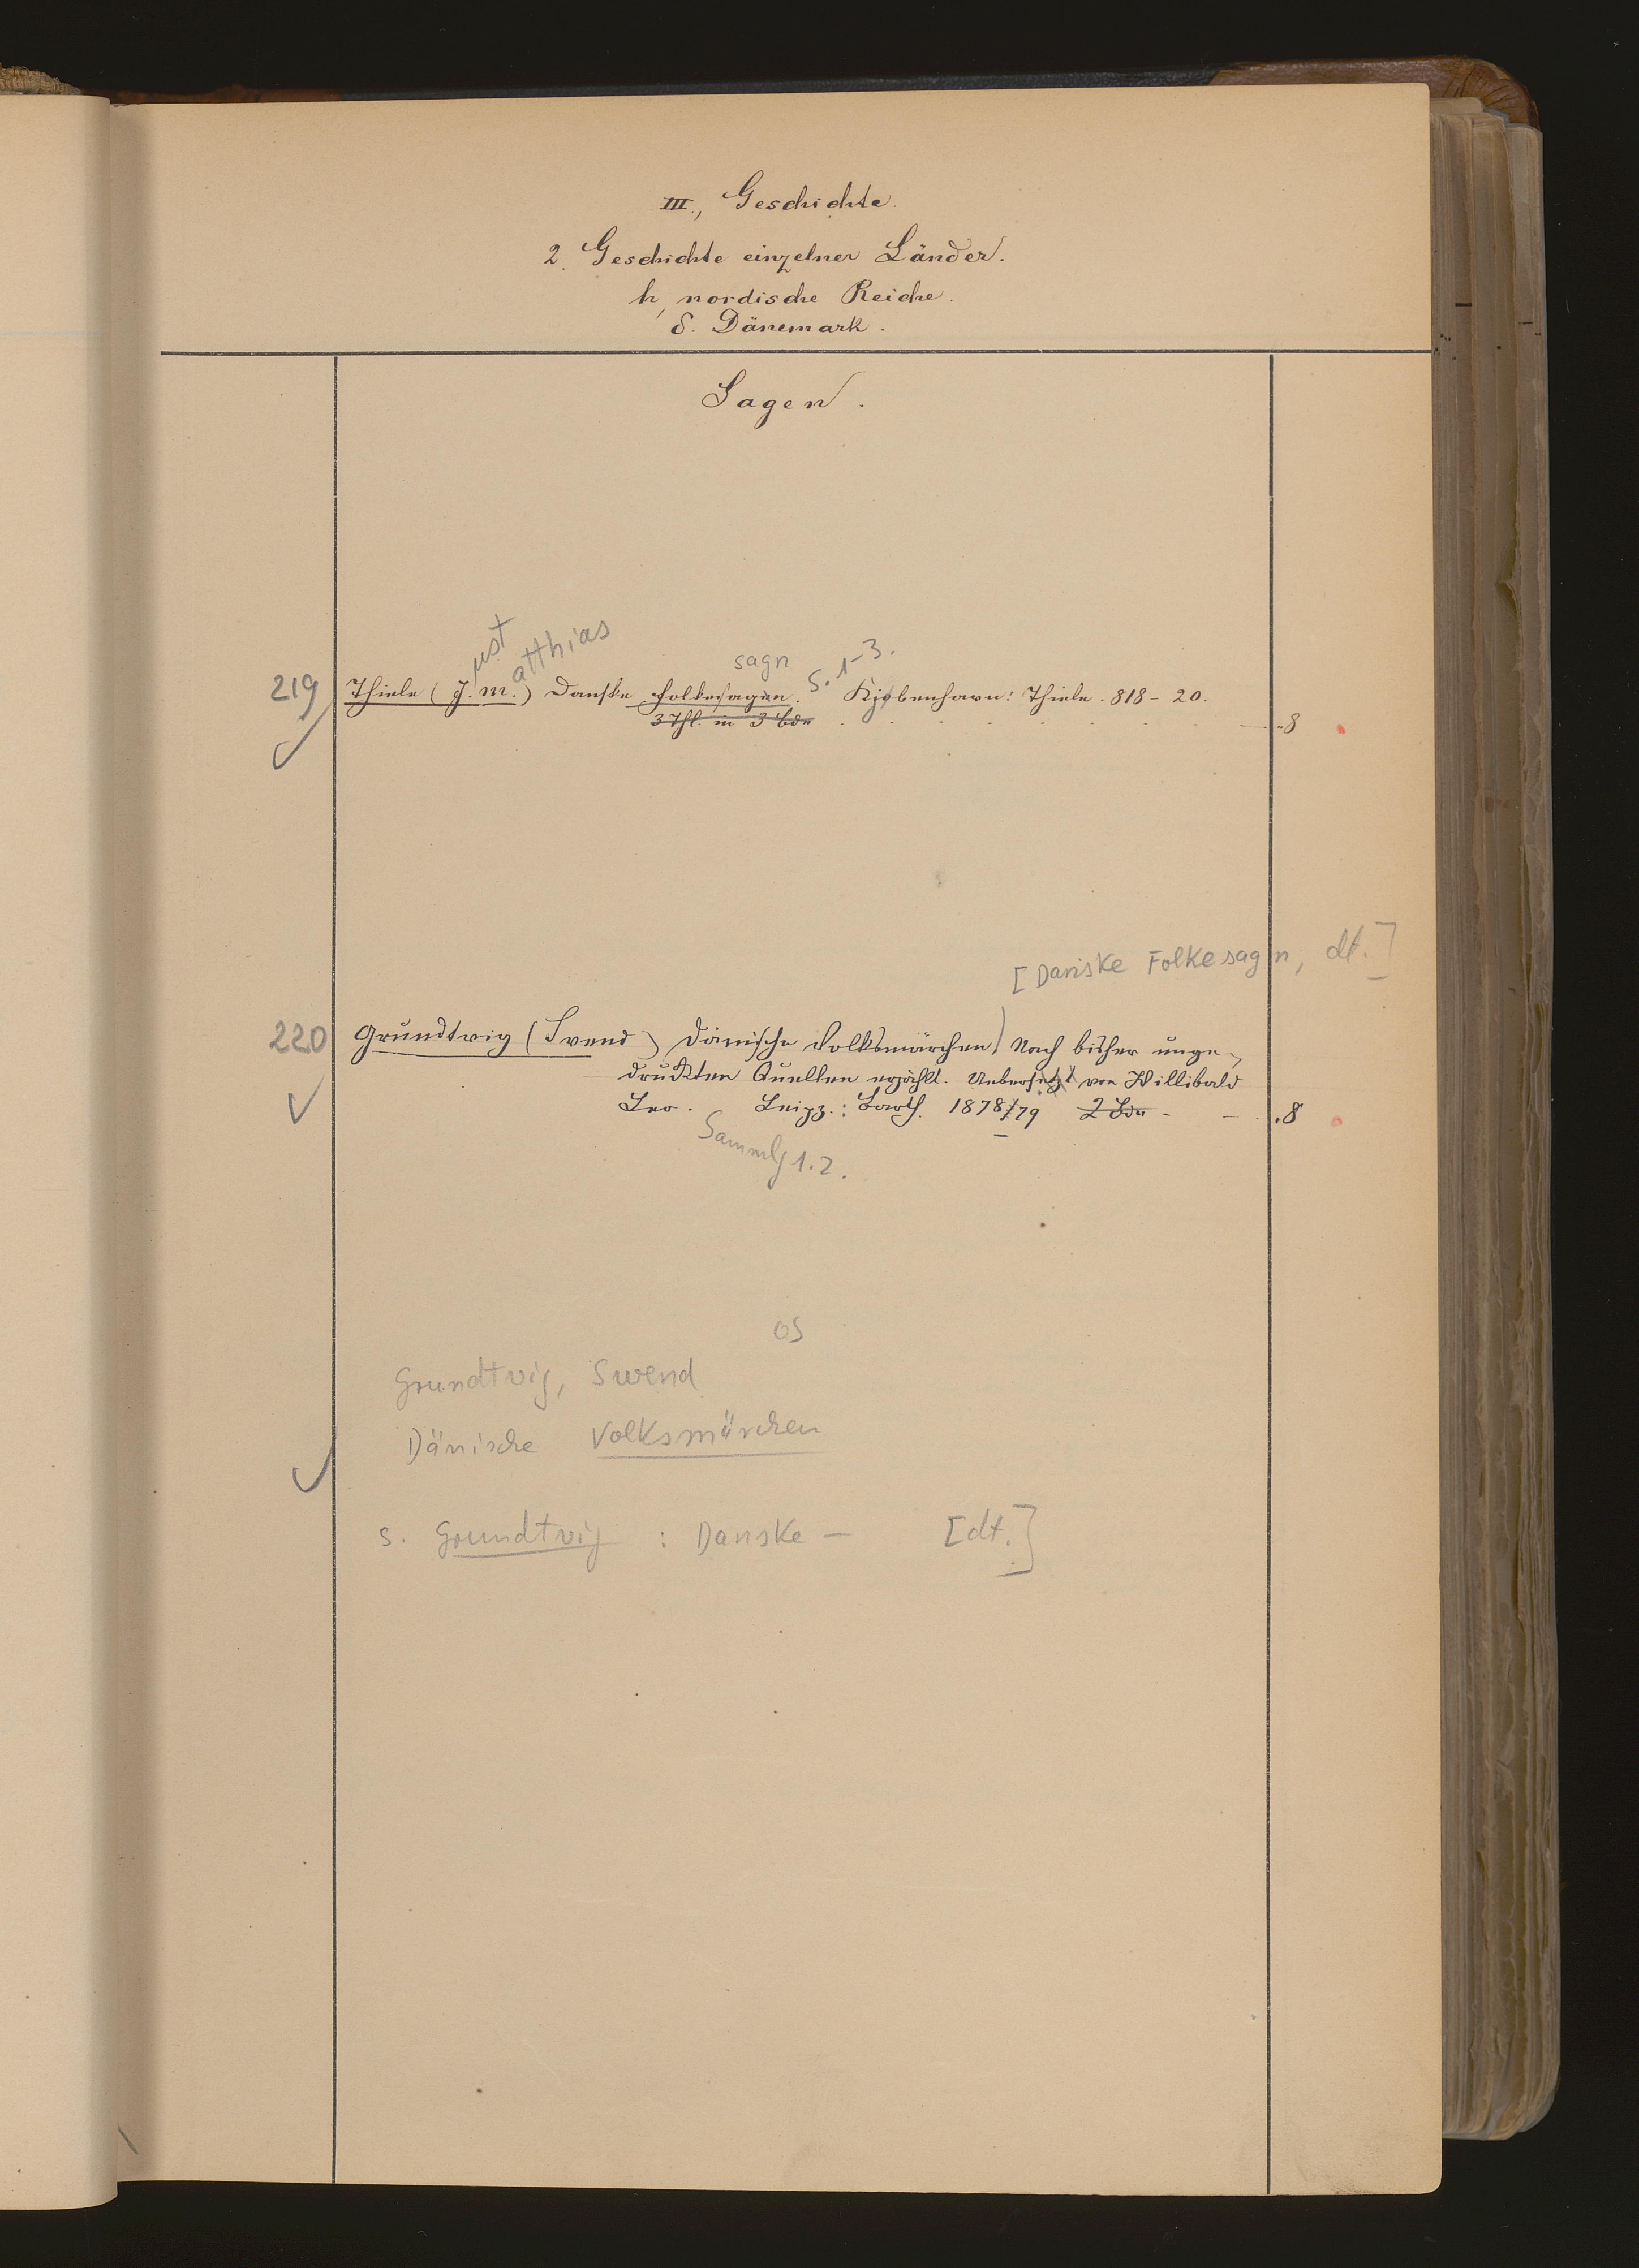 III., Geschichte.
2. Geschichte einzelner Länder.
h, nordische Reiche.
δ. Dänemark.
Sagen.
ust atthias
sagn S. 1-3.
219 Thiele (J. M.) Danske Folkesagen. Kjøbenhavn: Thiele. 818-20.
3 Thl. in 3 Bdn . . . . . . . . — .8
[Danske Folkesagn, dt.]
220 Grundtvig (Svend) Dänische Volksmärchen) Nach bisher unge-
druckten Quellen erzählt. Uebersetzt von Willibald
Leo. Leipz.: Barth. 1878/79 2 Bde - - .8
Sammlg 1.2.
OS
Grundtvig, Swend
Dänische Volksmärchen
s. Grundtvig : Danske — [dt.]